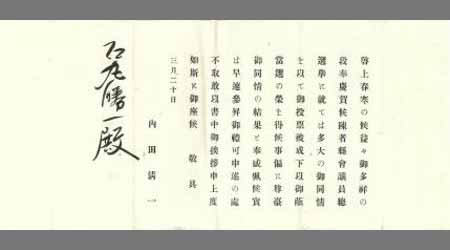 啓上春寒の候益々御多祥の
段奉慶賀候陳者縣會議員總
選擧に就ては多大の御同情
を以て御投票被成下以御蔭
當選の榮を得候事偏に尊臺
御同情の結果と奉感佩候實
は早速參昇御禮可申述の處
不取敢以書中御挨拶申上度
如斯に御座候 敬具
三月二十日
内田清一
勝一殿